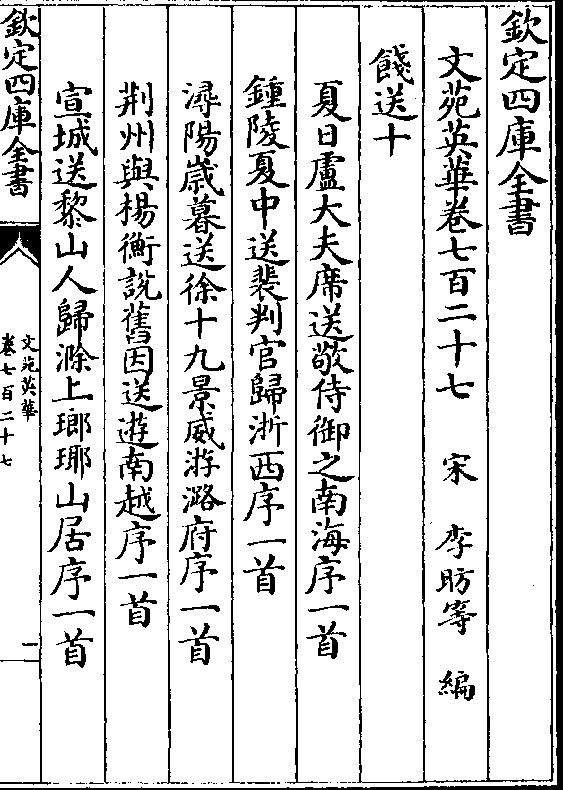 欽定四庫全書
文苑英華卷七百二十七 宋 李昉等 編
餞送十
夏日盧大夫席送敬侍御之南海序一首
鍾陵夏中送裴判官歸浙西序一首
潯陽歳暮送徐十九景威游潞府序一首
荆州與楊衡說舊因送遊南越序一首
宣城送黎山人歸滁上瑯琊山居序一首
欽定四庫全書
文苑英華
卷七百二十七
一